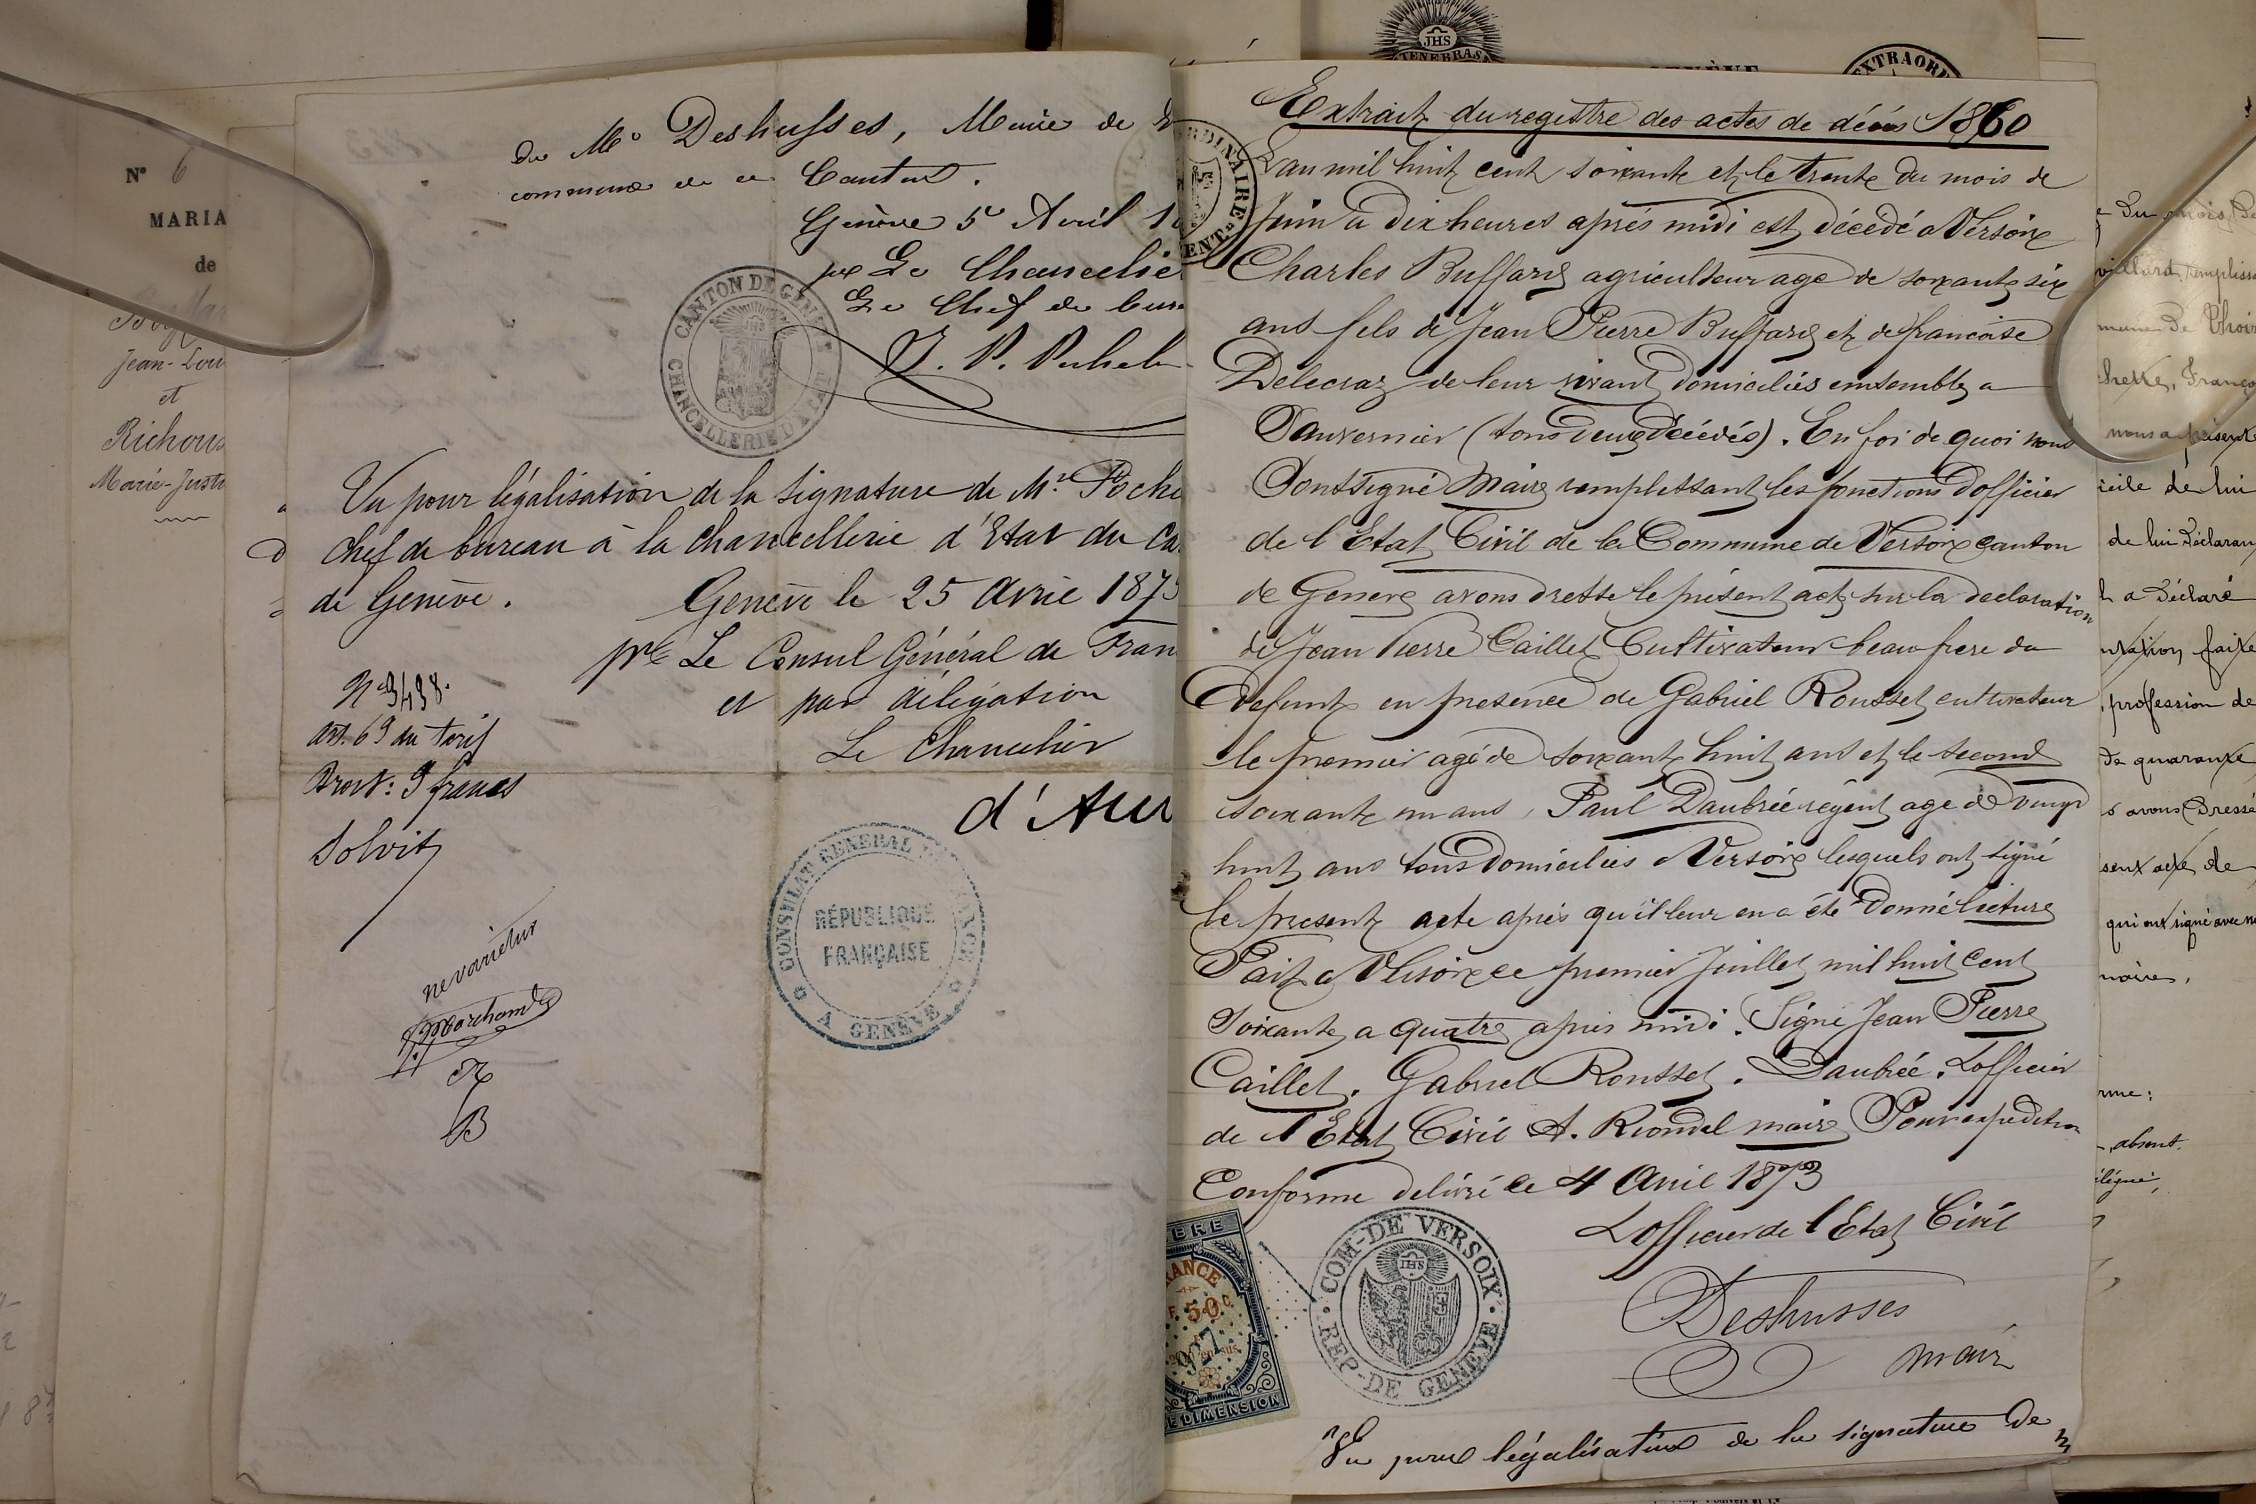 N° 6
MARIA
de
Jean-Lou
et
Richous
Marie-Justi
du Mr Deshusses, Maire de
commune de ce Canton.
Genève 5 Avril 1
pr Le Chancelie
Le Chef de bure
CANTON DE GENÈVE
CHANCELLERIE D'ÉTAT
Vu pour légalisation de la signature de Mr Poche
chef de bureau à la chancellerie d'Etat du Ca
de Genève.
Genève le 25 Avril 1873
pr Le Consul Général de Fran
et par délégation
Le Chancelier
d'Au
N° 3498.
art. 69 du tarif
Droit: 9 francs
Solvit
ne varietur
Marchand
B
CONSULAT GENERAL DE FRANCE
RÉPUBLIQUE
FRANÇAISE
A GENÈVE
JHS
TENEBRAS
EXTRAORD
Extrait du registre des actes de décès 1860
L'an mil huit cent soixante et le trente du mois de
Juin à dix heures après midi est décédé a Versoix
Charles Buffard agriculteur age de soixante six
ans fils de Jean Pierre Buffard et de francoise
Delecraz de leur vivant domiciliés ensemble a
Sauvernier (tous deux décédés). En foi de quoi nous
Soussigné Maire remplissant les fonctions d'officier
de l'Etat Civil de la Commune de Versoix canton
de Geneve avons dressé le présent acte sur la declaration
de Jean Pierre Caillet Cultivateur beau frere du
defunt en presence de Gabriel Rousset cultivateur
le premier agé de soixante huit ans et le second
soixante un ans, Paul Daubrée régent age de vingt
huit ans tous domiciliés a Versoix lesquels ont signé
le present acte après qu'il leur en a été donné lecture
Fait a Versoix ce premier Juillet mil huit cent
soixante a quatre apres midi. Signé Jean Pierre
Caillet. Gabriel Rousset. Daubrée. L'officier
de l'Etat Civil A. Riondel maire Pour expedition
Conforme delivré ce 4 Avril 1873
L'officier de l'Etat Civil
Deshusses
maire
COM-DE VERSOIX
REP-DE GENÈVE
IHS
50 C.
DIMENSION
Vu pour légalisation de la signature de
du mois de
villard, remplissa
de Thoir
Franço
nous a présent
de lui
de lui déclaran
a déclaré
faite
profession de
de quarante
s avons dressé
acte de
qui ont signé avec no
absent